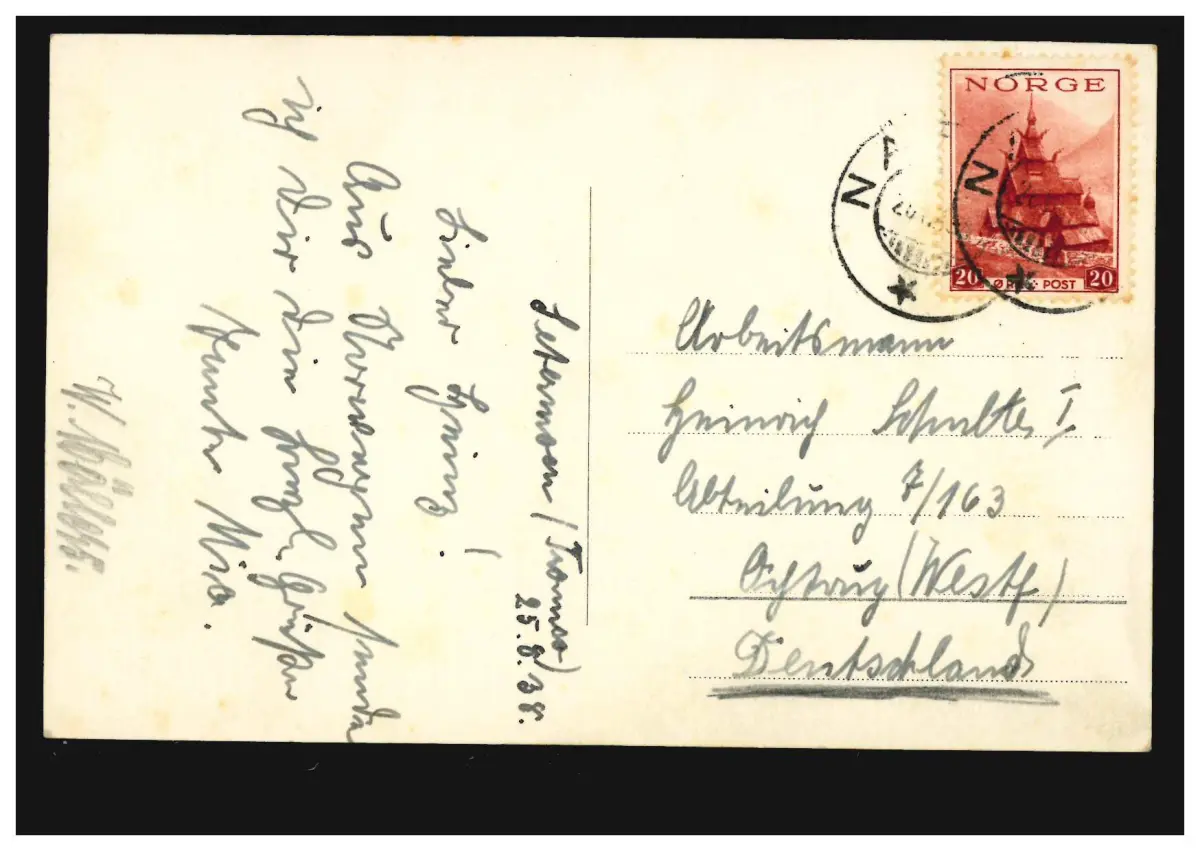 Setermoen (Tromsø)
25.8.38.
Lieber Heinz!
Aus Norwegen sende
ich Dir die herzl. Grüße
Tante Mia.
W.
NORGE
20 ØRE POST 20
Arbeitsmann
Heinrich Schulte I
Abteilung 7/163
Ochtrup (Westf)
Deutschland